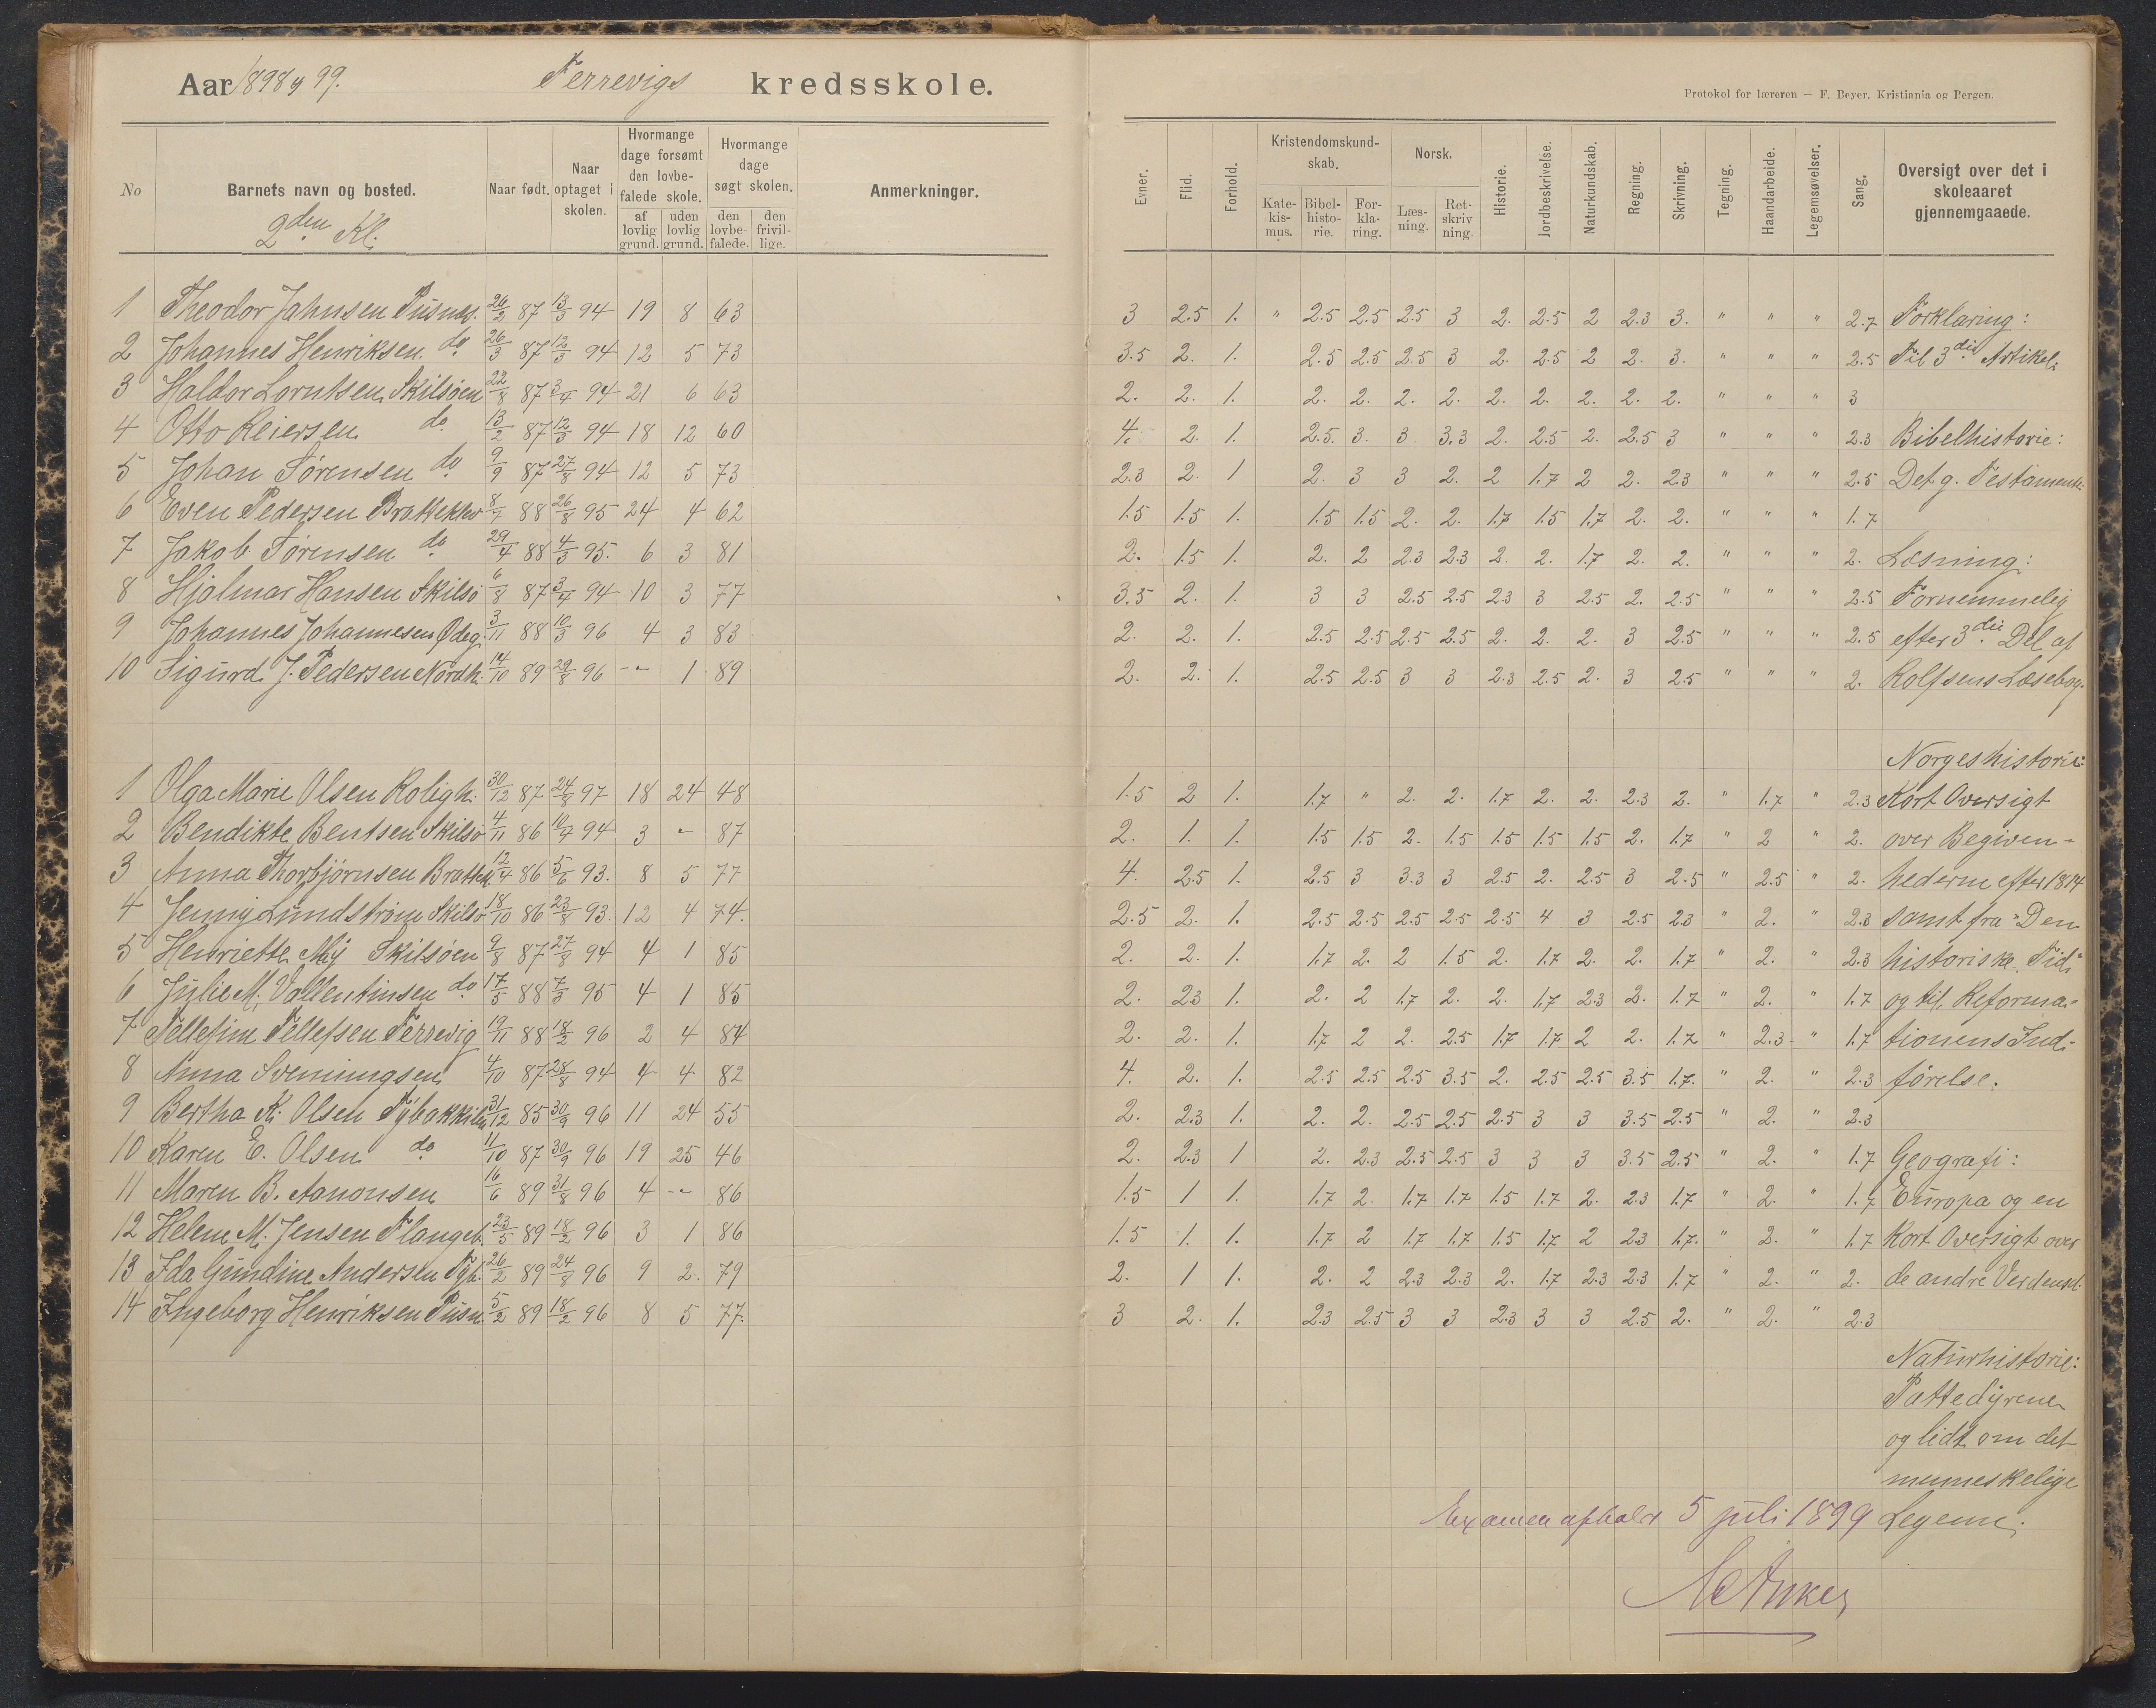 Aar 1898 og 99. Terrevigs kredsskole.
Protokol for læreren — F. Beyer, Kristiania og Bergen.
No Barnets navn og bosted. Naar født. Naar optaget i skolen. Hvormange dage forsømt den lovbefalede skole. af lovlig grund. uden lovlig grund. Hvormange dage søgt skolen. den lovbefalede. den frivillige. Anmerkninger.
Evner. Flid. Forhold. Kristendomskundskab. Katekismus. Bibelhistorie. Forklaring. Norsk. Læsning. Retskrivning. Historie. Jordbeskrivelse. Naturkundskab. Regning. Skrivning. Tegning. Haandarbeide. Legemsøvelser. Sang. Oversigt over det i skoleaaret gjennemgaaede.
2den Kl.
1 Theodor Jahnsen Pusnes. 26/2 87 13/3 94 19 8 63 3 2.5 1. " 2.5 2.5 2.5 3 2. 2.5 2 2.3 3. " " " 2.7 Forklaring:
2 Johannes Henriksen do 26/3 87 12/3 94 12 5 73 3.5 2. 1. 2.5 2.5 2.5 3 2. 2.5 2 2. 3. " " " 2.5 Til 3die Artikel.
3 Haldor Lorntsen, Skilsöen 22/8 87 3/4 94 21 6 63 2. 2. 1. 2. 2. 2. 2. 2. 2. 2. 2. 2. " " " 3
4 Otto Reiersen do 13/2 87 12/3 94 18 12 60 4. 2. 1. 2.5. 3. 3 3.3 2. 2.5 2. 2.5 3 " " " 2.3 Bibelhistorie:
5 Johan Sörensen do 9/9 87 27/8 94 12 5 73 2.3 2. 1 2. 3 3 2. 2 1.7 2 2. 2.3 " " " 2.5 Det g. Testamente.
6 Even Pedersen Brattekleo 8/7 88 26/8 95 24 4 62 1.5 1.5 1. 1.5 1.5 2. 2. 1.7 1.5 1.7 2. 2. " " " 1.7
7 Jakob Sörensen do 29/4 88 4/3 95. 6 3 81 2. 1.5 1. 2. 2 2.3 2.3 2. 2. 1.7 2. 2. " " " 2. Læsning:
8 Hjalmar Hansen Skilsö 6/8 87 3/4 94 10 3 77 3.5 2. 1. 3 3 2.5 2.5 2.3 3 2.5 2. 2.5 " " " 2.5 Fornemmelig
9 Johannes Johannesen Ødeg. 3/11 88 10/3 96 4 3 83 2. 2. 1. 2.5 2.5 2.5 2.5 2. 2. 2. 3 2.5 " " " 2.5 efter 3die Del af
10 Sigurd J. Pedersen Nordh. 14/10 89 29/8 96 -"- 1 89 2. 2. 1. 2.5 2.5 3 3 2.3 2.5 2. 3 2.5 " " " 2. Rolfsens Læsebog.
Norgeshistorie:
1 Olga Marie Olsen Roligh. 30/12 87 24/8 97 18 24 48 1.5 2 1. 1.7 " 2. 2. 1.7 2. 2. 2.3 2. " 1.7 " 2.3 Kort Oversigt
2 Bendikte Bentsen Skilsö 4/11 86 10/4 94 3 - 87 2. 1. 1. 1.5 1.5 2. 1.5 1.5 1.5 1.5 2. 1.7 " 2 " 2. over Begiven-
3 Anna Thorbjörnsen Brattek. 12/4 86 5/6 93. 8 5 77 4. 2.5 1. 2.5 3 3.3 3 2.5 2. 2.5 3 2.5 " 2.5 " 2. hederne efter 1814
4 Jenny Lundström Skilsö 18/10 86 23/8 93. 12 4 74. 2.5 2. 1. 2.5 2.5 2.5 2.5 2.5 4 3 2.5 2.3 " 2. " 2.3 samt fra "Den
5 Henriette My Skilsöen 9/8 87 27/8 94 4 1 85 2. 2. 1. 1.7 2. 2 1.5 2. 1.7 2. 2. 1.7 " 2. " 2.3 historiske Tid"
6 Julie M. Vallentinsen do 17/5 88 7/3 95 4 1 85 2. 2.3 1. 2. 2 1.7 2. 2. 1.7 2.3 2. 1.7 " 2. " 1.7 og til Reforma-
7 Tellefine Tellefsen Terrevig 19/11 88 18/2 96 2 4 84 2. 2. 1. 1.7 2 2. 2.5 1.7 1.7 2 2. 1.7 " 2.3 " 1.7 tionens Ind-
8 Anna Svenningsen 4/10 87 28/8 94 4 4 82 4. 2. 1. 2.5 2.5 2.5 3.5 2. 2.5 2.5 3.5 1.7. " 2. " 2.3 förelse.
9 Bertha K. Olsen Tybakkilen 31/12 85 30/9 96 11 24 55 2. 2.3 1. 2. 2. 2.5 2.5 2.5 3 3 3.5 2.5 " 2. " 2.3
10 Karen E. Olsen do 11/10 87 30/9 96 19 25 46 2. 2.3 1 2. 2.3 2.5 2.5 3 3 3 3.5 2.5 " 2. " 1.7 Geografi:
11 Maren B. Aanonsen 16/6 89 31/8 96 4 -"- 86 1.5 1 1. 1.7 2. 1.7 1.7 1.5 1.7 2. 2.3 1.7 " 2. " 1.7 Europa og en
12 Helene M. Jensen Flanget. 23/5 89 18/2 96 3 1 86 1.5 1. 1. 1.7 2 1.7 1.7 1.5 1.7 2 2.3 1.7. " 2. " 1.7 kort Oversigt over
13 Ida Gundine Andersen Tyb. 26/2 89 24/8 96 9 2. 79 2. 1 1. 2. 2 2.3 2.3 2. 1.7 2.3 2.3 1.7 " 2. " 2. de andre Verdensd.
14 Ingeborg Henriksen Pusn. 5/2 89 18/2 96 8 5 77. 3 2. 1. 2.3 2.5 3 3 2.3 3 3 2.5 2. " 2. " 2.3
Naturhistorie:
Pattedyrene
og lidt om det
menneskelige
Examen afholdt 5 juli 1899 Legeme.